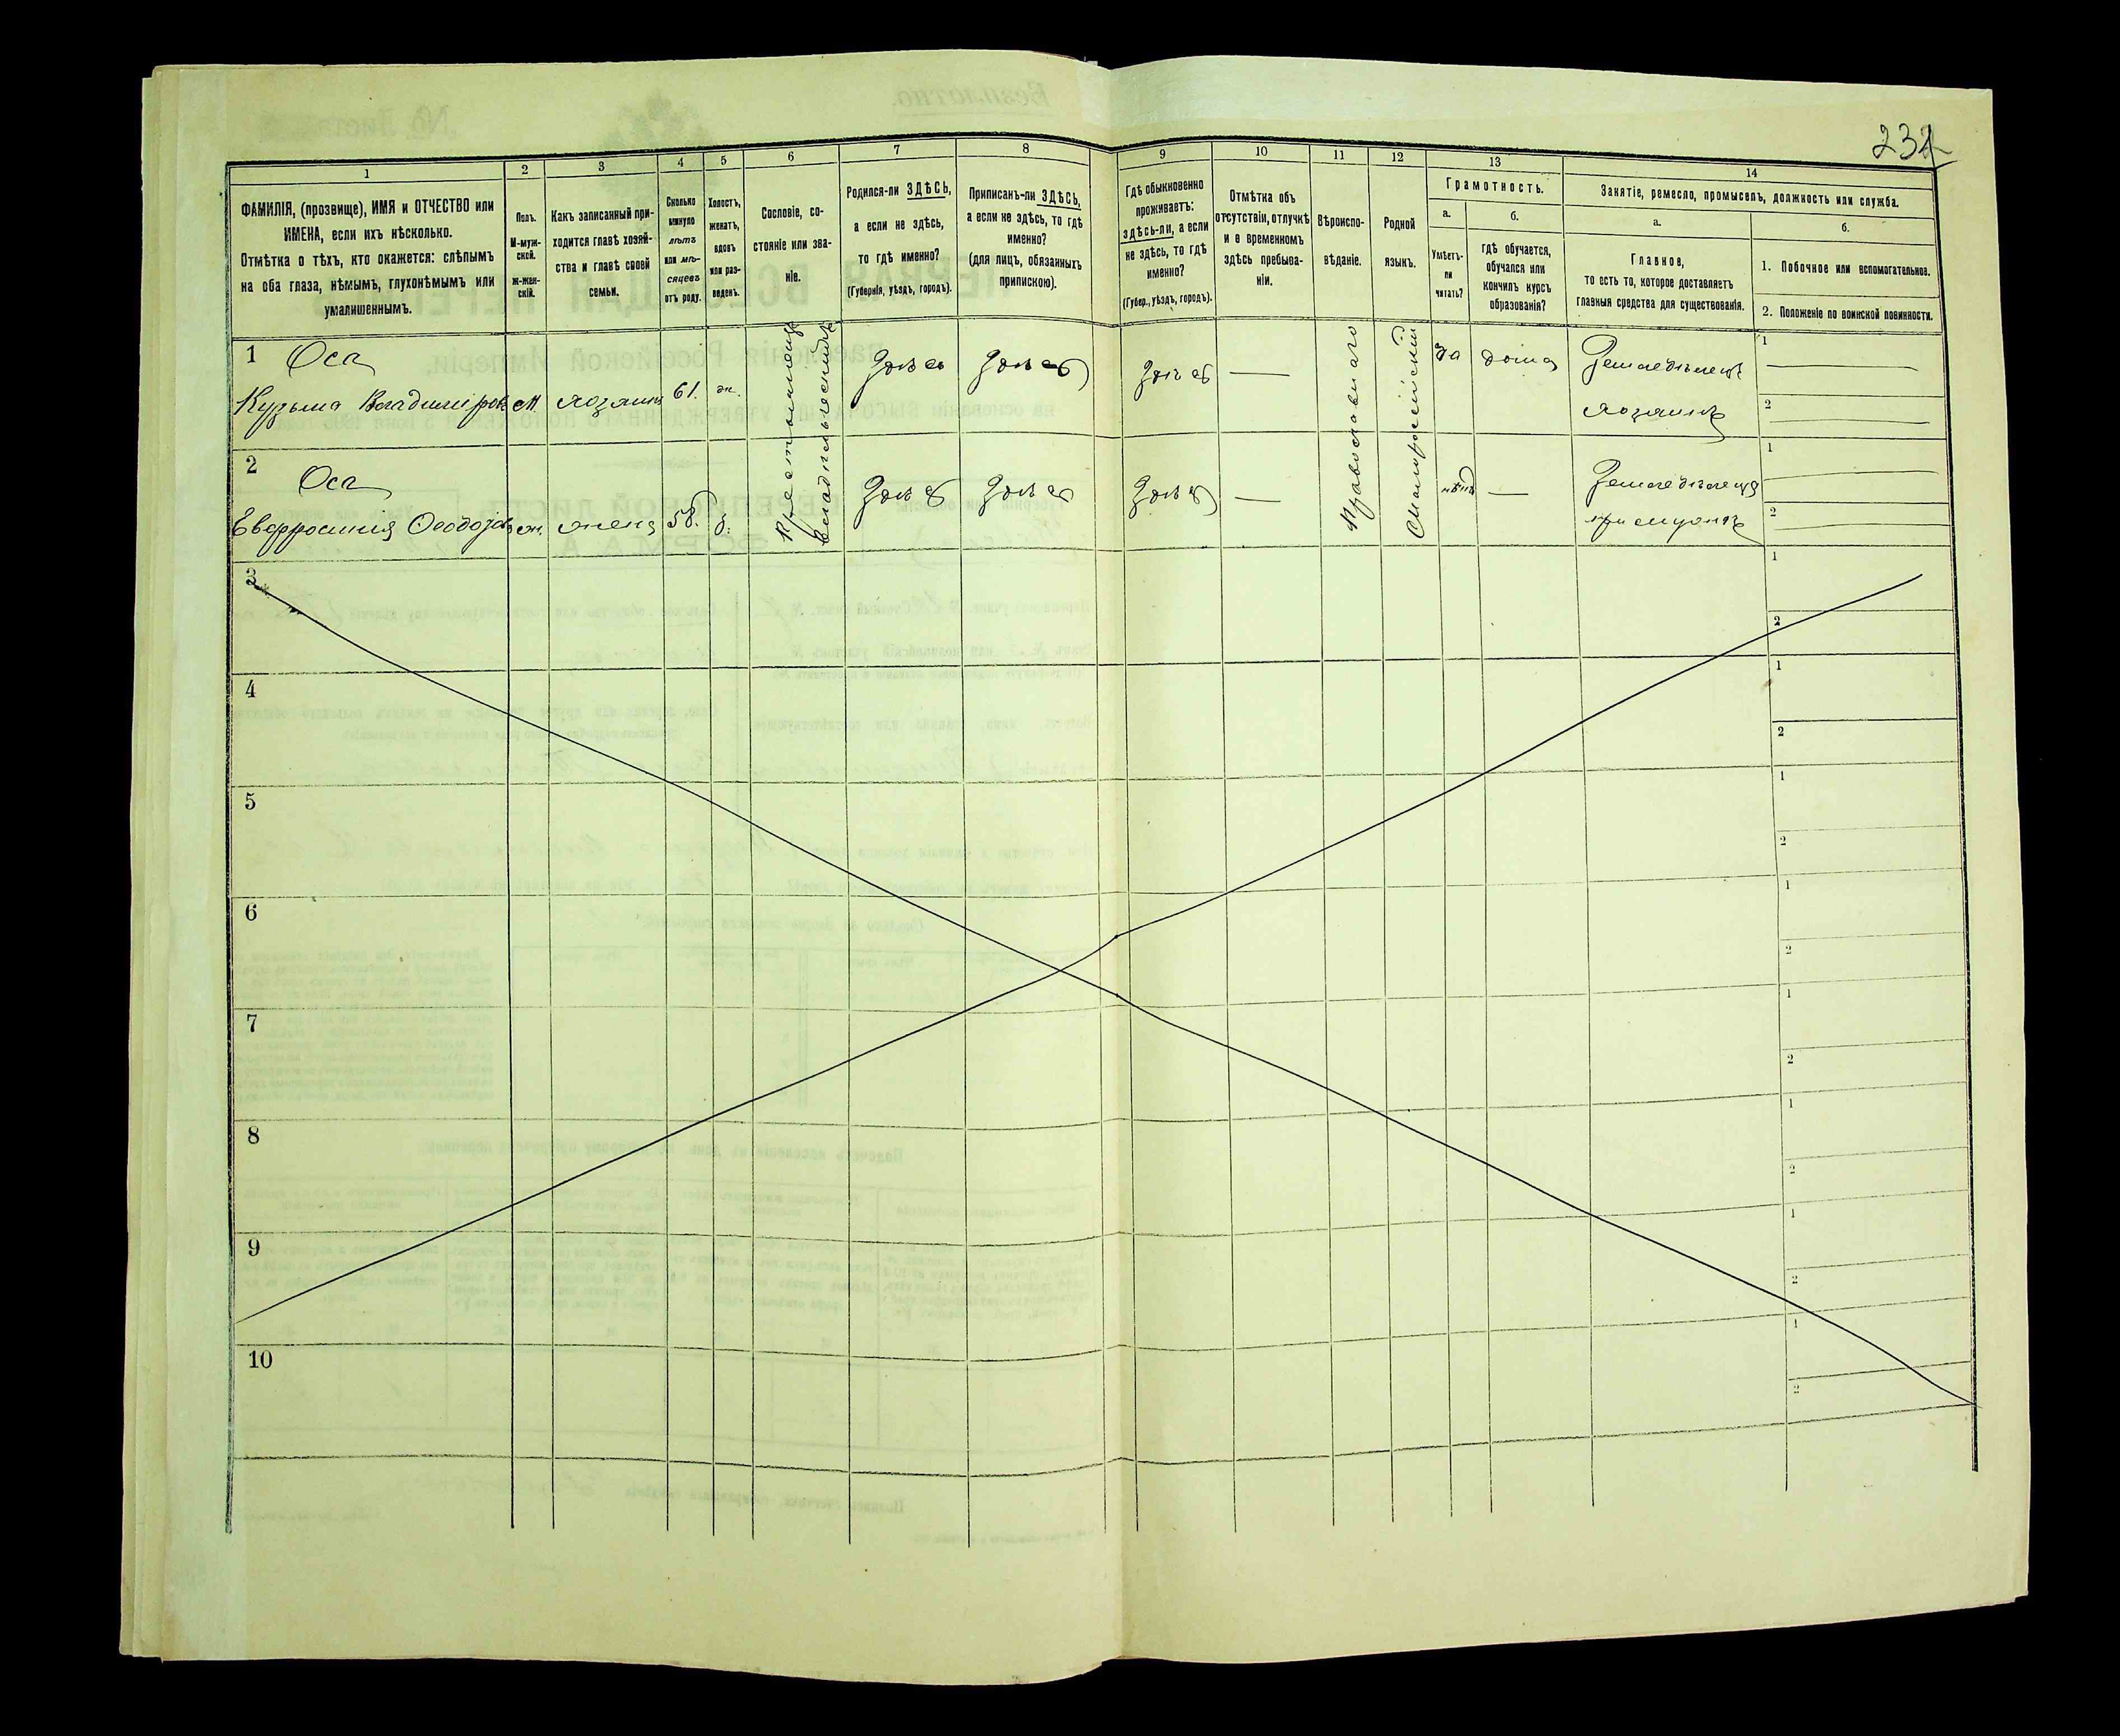 232
1
2
3
4
5
6
7
8
9
10
11
12
13
14
ФАМИЛІЯ, (прозвище), ИМЯ и ОТЧЕСТВО или
ИМЕНА, если ихъ нѣсколько.
Отмѣтка о тѣхъ, кто окажется: слѣпымъ
на оба глаза, нѣмымъ, глухонѣмымъ или
умалишеннымъ.
Полъ.
М-муж-
ской.
Ж-жен-
скій.
Какъ записанный при-
ходится главѣ хозяй-
ства и главѣ своей
семьи.
Сколько
минуло
лѣтъ
или мѣ-
сяцевъ
отъ роду.
Холостъ,
женатъ,
вдовъ
или раз-
веденъ.
Сословіе, со-
стояніе или зва-
ніе.
Родился-ли ЗДѢСЬ,
а если не здѣсь,
то гдѣ именно?
(Губернія, уѣздъ, городъ).
Приписанъ-ли ЗДѢСЬ,
а если не здѣсь, то гдѣ
именно?
(для лицъ, обязанныхъ
припискою).
Гдѣ обыкновенно
проживаетъ:
здѣсь-ли, а если
не здѣсь, то гдѣ
именно?
(Губер., уѣздъ, городъ).
Отмѣтка объ
отсутствіи, отлучкѣ
и о временномъ
здѣсь пребыва-
ніи.
Вѣроиспо-
вѣданіе.
Родной
языкъ.
Грамотность.
а.
б.
Умѣетъ-
ли
читать?
гдѣ обучается,
обучался или
кончилъ курсъ
образованія?
Занятіе, ремесло, промыселъ, должность или служба.
а.
б.
Главное,
то есть то, которое доставляетъ
главныя средства для существованія.
1. Побочное или вспомогательное.
2. Положеніе по воинской повинности.
1 Оса
Кузьма Владиміровъ М. хозяинъ 61. ж. Здѣсь Здѣсь Здѣсь — да дома Земледѣлецъ
хозяинъ
1
2
2 Оса
Евфросинія Ѳеодоз. ж. жена 58. з. Здѣсь Здѣсь Здѣсь — нѣтъ — Земледѣлец
при мужѣ
1
2
Православнаго
Малороссійскій
3
1
2
4
1
2
5
1
2
6
1
2
7
1
2
8
1
2
9
1
2
10
1
2